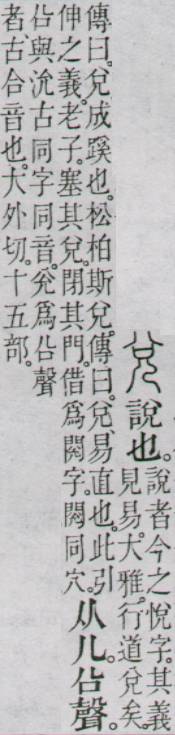 兌說也。
說者今之悅字。其義
見易。大雅。行道兌矣。
傳曰。兌成蹊也。松柏斯兌。傳曰。兌易直也。此引
伸之義。老子。塞其兌。閉其門。借爲閱字。閱同穴。
从儿㕣聲。
㕣與沇古同字同音。兌爲㕣聲
者、古合音也。大外切。十五部。